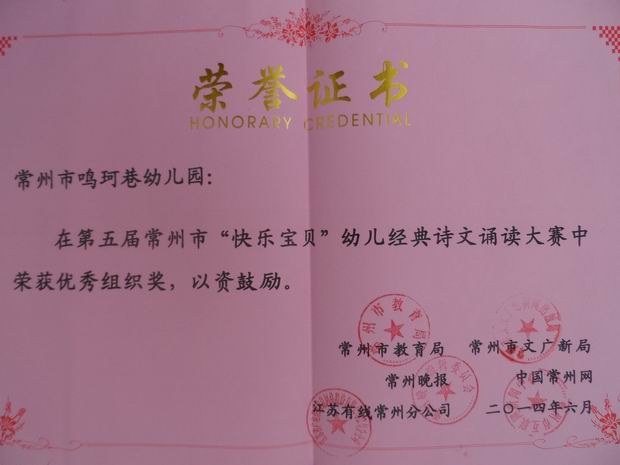 荣誉证书
HONORARY CREDENTIAL
常州市鸣珂巷幼儿园：
在第五届常州市“快乐宝贝”幼儿经典诗文诵读大赛中
荣获优秀组织奖，以资鼓励。
常州市教育局 常州市文广新局
常州晚报 中国常州网
江苏有线常州分公司 二〇一四年六月
常州市教育局